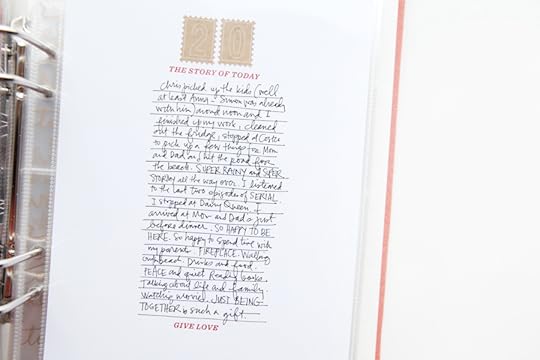 20
THE STORY OF TODAY
Chris picked up the kids (well
at least Anna - Simon was already
with him) around noon and I
finished up my work, cleaned
out the fridge, stopped at Costco
to pick up a few things for Mom
and Dad and hit the road for
the beach. SUPER RAINY and SUPER
STORMY all the way over. I listened
to the last two episodes of SERIAL.
I stopped at Dairy Queen +
arrived at Mom and Dad's just
before dinner. SO HAPPY TO BE
HERE. So happy to spend time with
my parents. FIREPLACE. Walking
on beach. Drinks and food.
PEACE and quiet. Reading books.
Talking about life and family.
Watching movies. JUST BEING
TOGETHER is such a gift.
GIVE LOVE